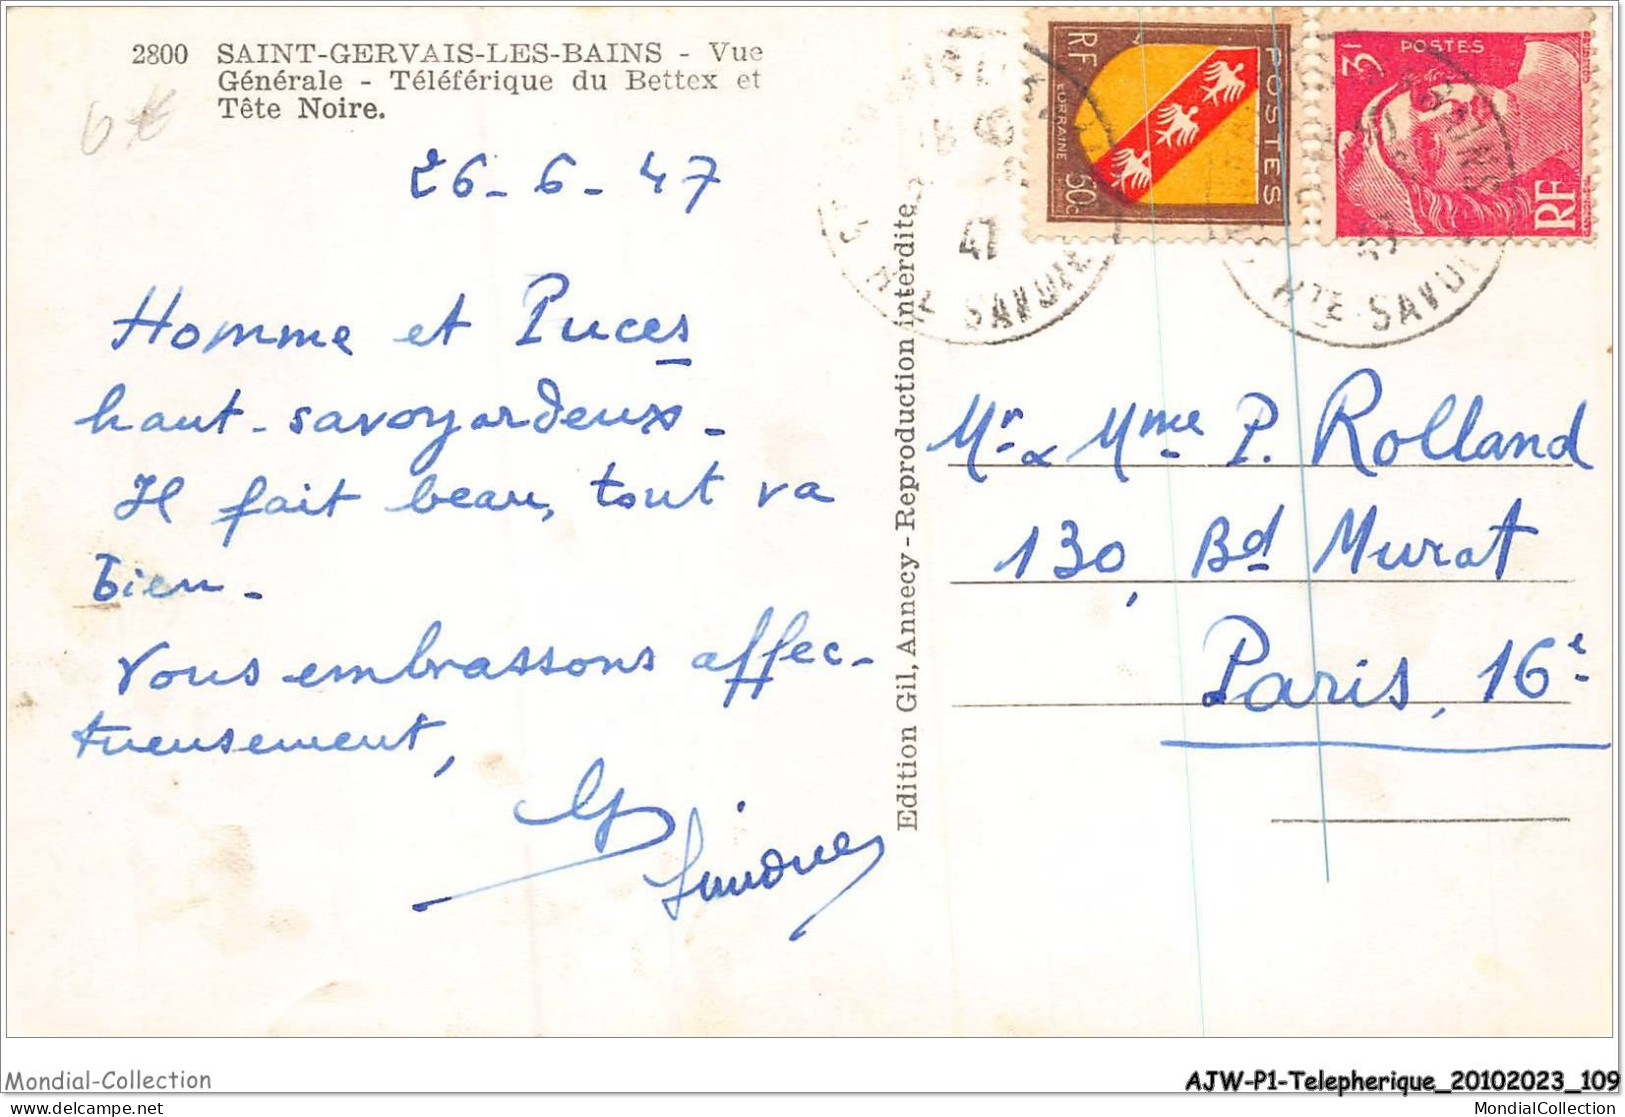 2800 SAINT-GERVAIS-LES-BAINS - Vue
Générale - Téléférique du Bettex et
Tête Noire.
6€
26-6-47
Homme et Puces
haut-savoyardeux-
Il fait beau, tout va
bien-
Vous embrassons affec-
tueusement,
Edition Gil, Annecy - Reproduction interdite
RF
POSTES
LORRAINE
50c
POSTES
3F
RF
47
HTE SAVOIE
47
HTE-SAVOIE
Mr & Mme P. Rolland
130, Bd Murat
Paris, 16e
Mondial-Collection
AJW-P1-Telepherique_20102023_109
delcampe.net
MondialCollection